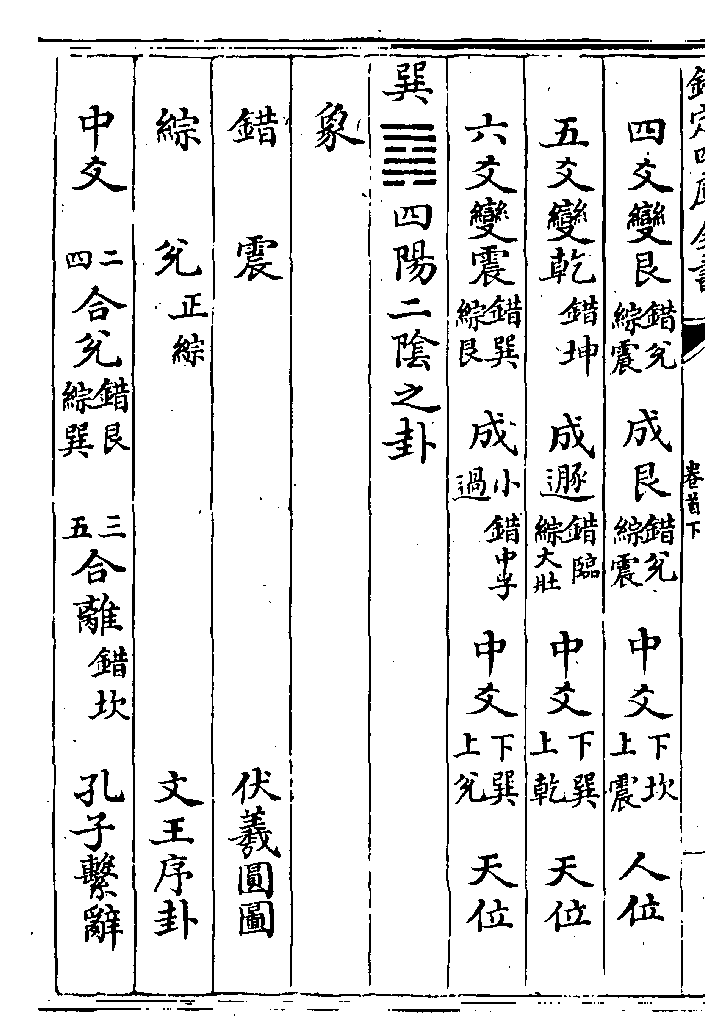 欽定四庫全書
卷首下
四爻變艮錯兌綜震 成艮錯兌綜震 中爻下坎上震 人位
五爻變乾錯坤 成遯錯臨綜大壯 中爻下巽上乾 天位
六爻變震錯巽綜艮 成小過錯中孚 中爻下巽上兌 天位
巽䷸四陽二陰之卦
象
錯 震 伏羲圓圖
綜 兌正綜 文王序卦
中爻 二四合兌錯艮綜巽 三五合離錯坎 孔子繫辭